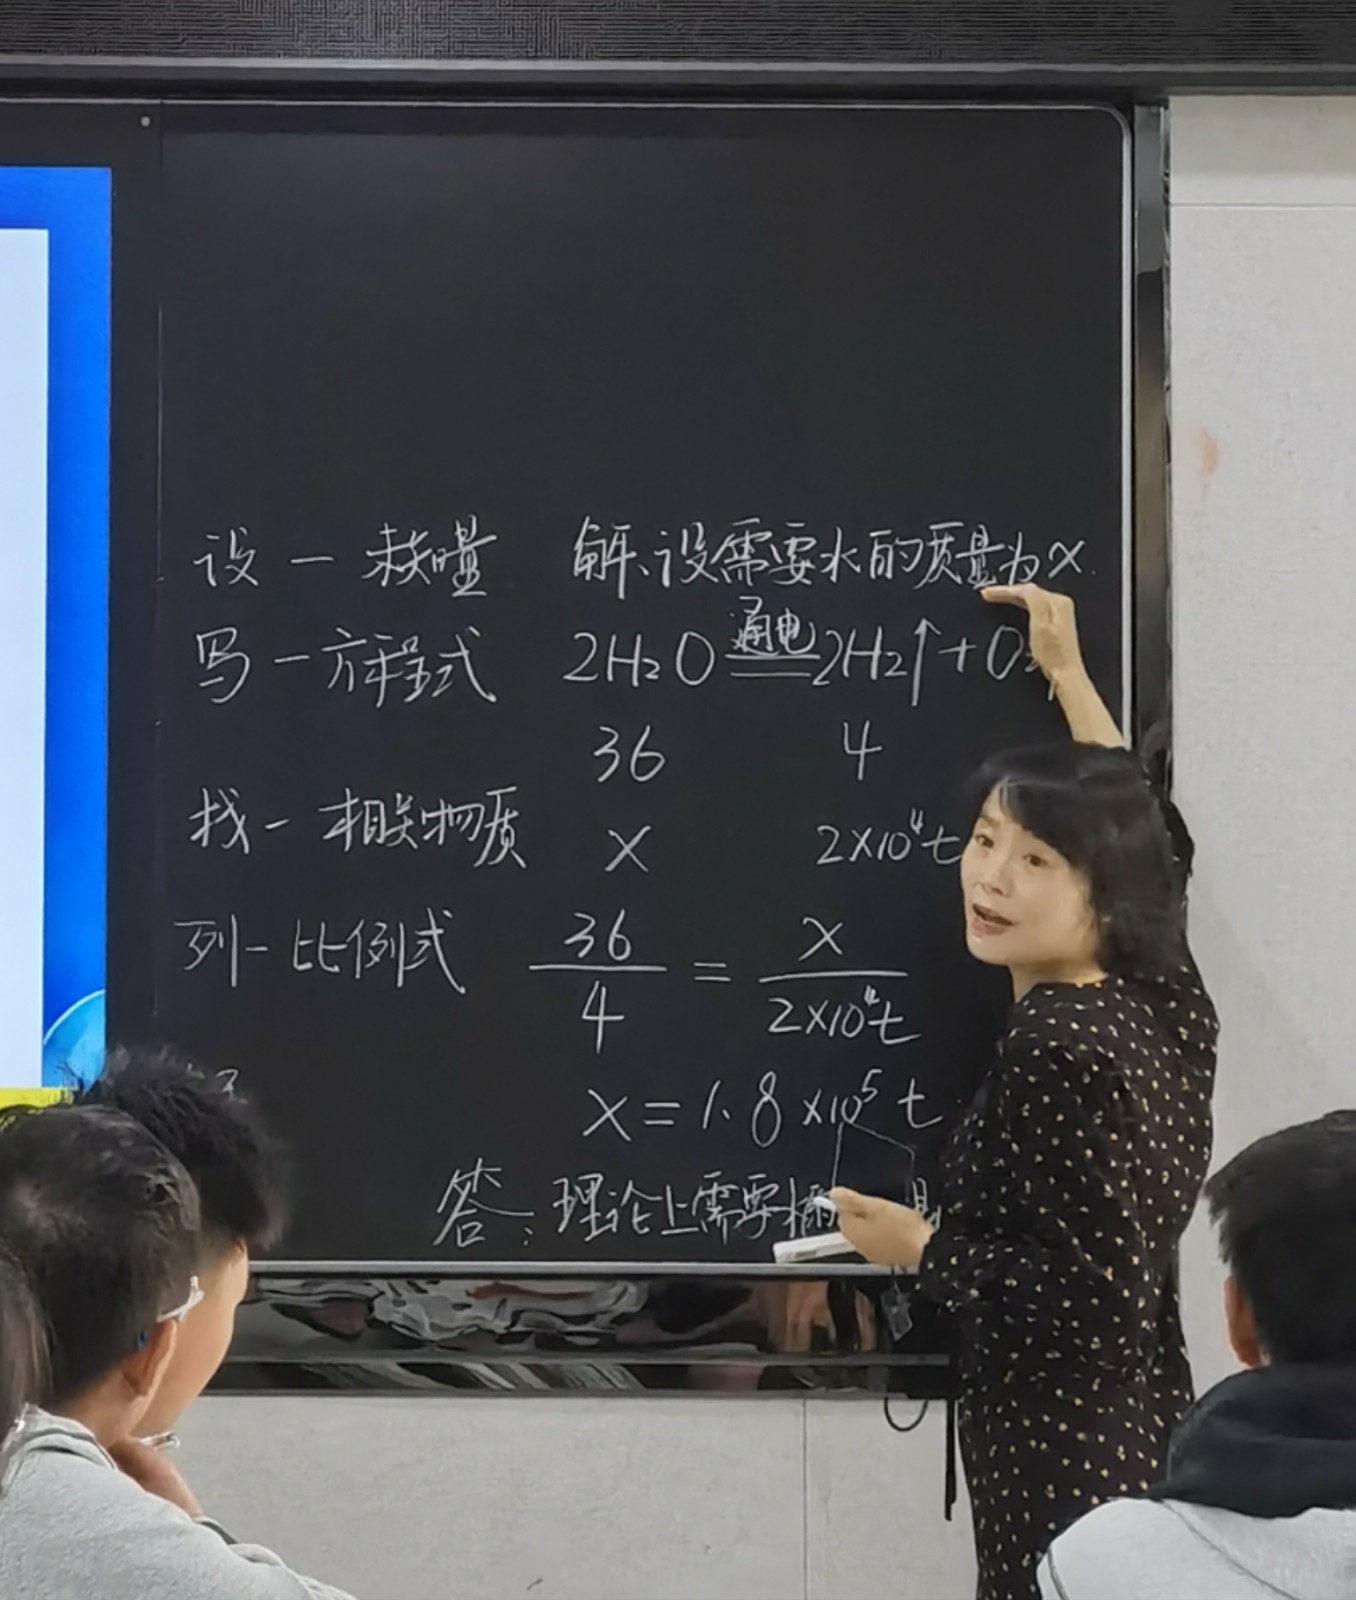 设一未知量 解:设需要水的质量为x.
写一方程式 2H₂O 通电 2H₂↑+O₂
36 4
找一相关物质 x 2×10⁴t
列一比例式 36/4 = x/2×10⁴t
x=1.8×10⁵t
答:理论上需要